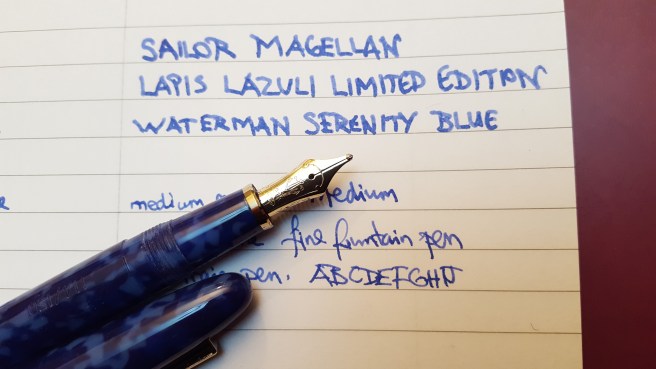 SAILOR MAGELLAN
LAPIS LAZULI LIMITED EDITION
WATERMAN SERENITY BLUE
medium medium
fine fountain pen
pen. ABCDEFGHN